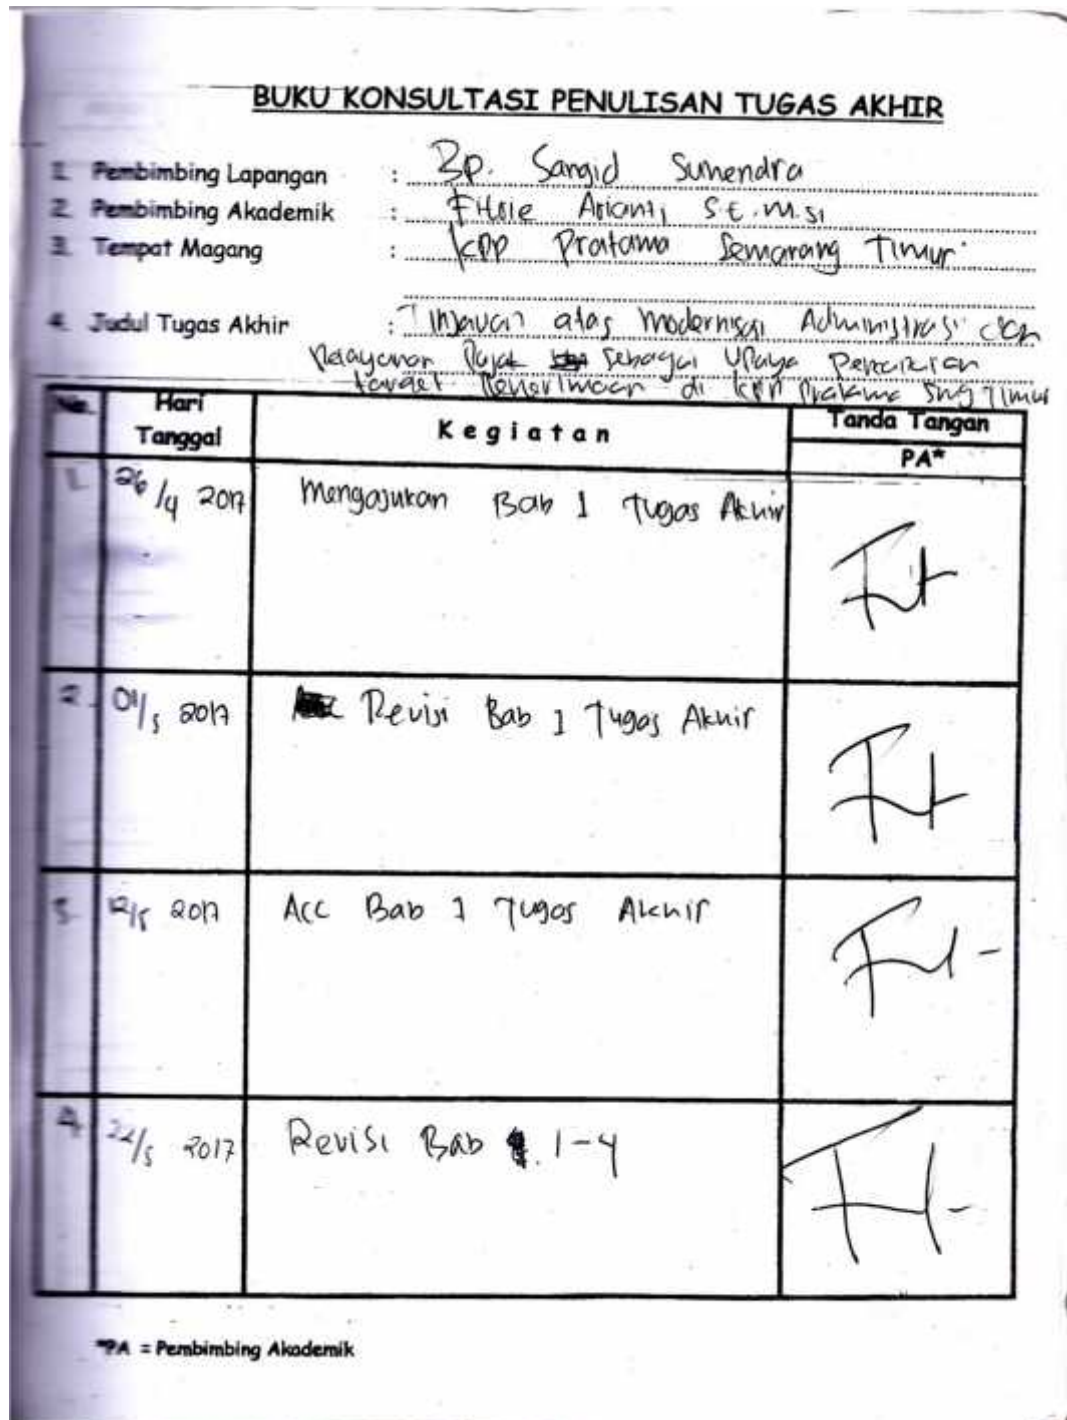 BUKU KONSULTASI PENULISAN TUGAS AKHIR
1. Pembimbing Lapangan : Bp. Sangid Sumendra
2. Pembimbing Akademik : Fitrie Arianti, S.E. M.si
3. Tempat Magang : KPP Pratama Semarang Timur
4. Judul Tugas Akhir : Tinjauan atas Modernisasi Administrasi dan
Pelayanan Pajak sebagai Upaya Pencapaian
target Penerimaan di KPP Pratama Smg Timur
No. Hari Tanggal Kegiatan Tanda Tangan
PA*
1. 26/4 2017 Mengajukan Bab 1 Tugas Akhir
2. 01/5 2017 Revisi Bab 1 Tugas Akhir
3. 12/5 2017 Acc Bab 1 Tugas Akhir
4 22/5 2017 Revisi Bab 1-4
*PA = Pembimbing Akademik